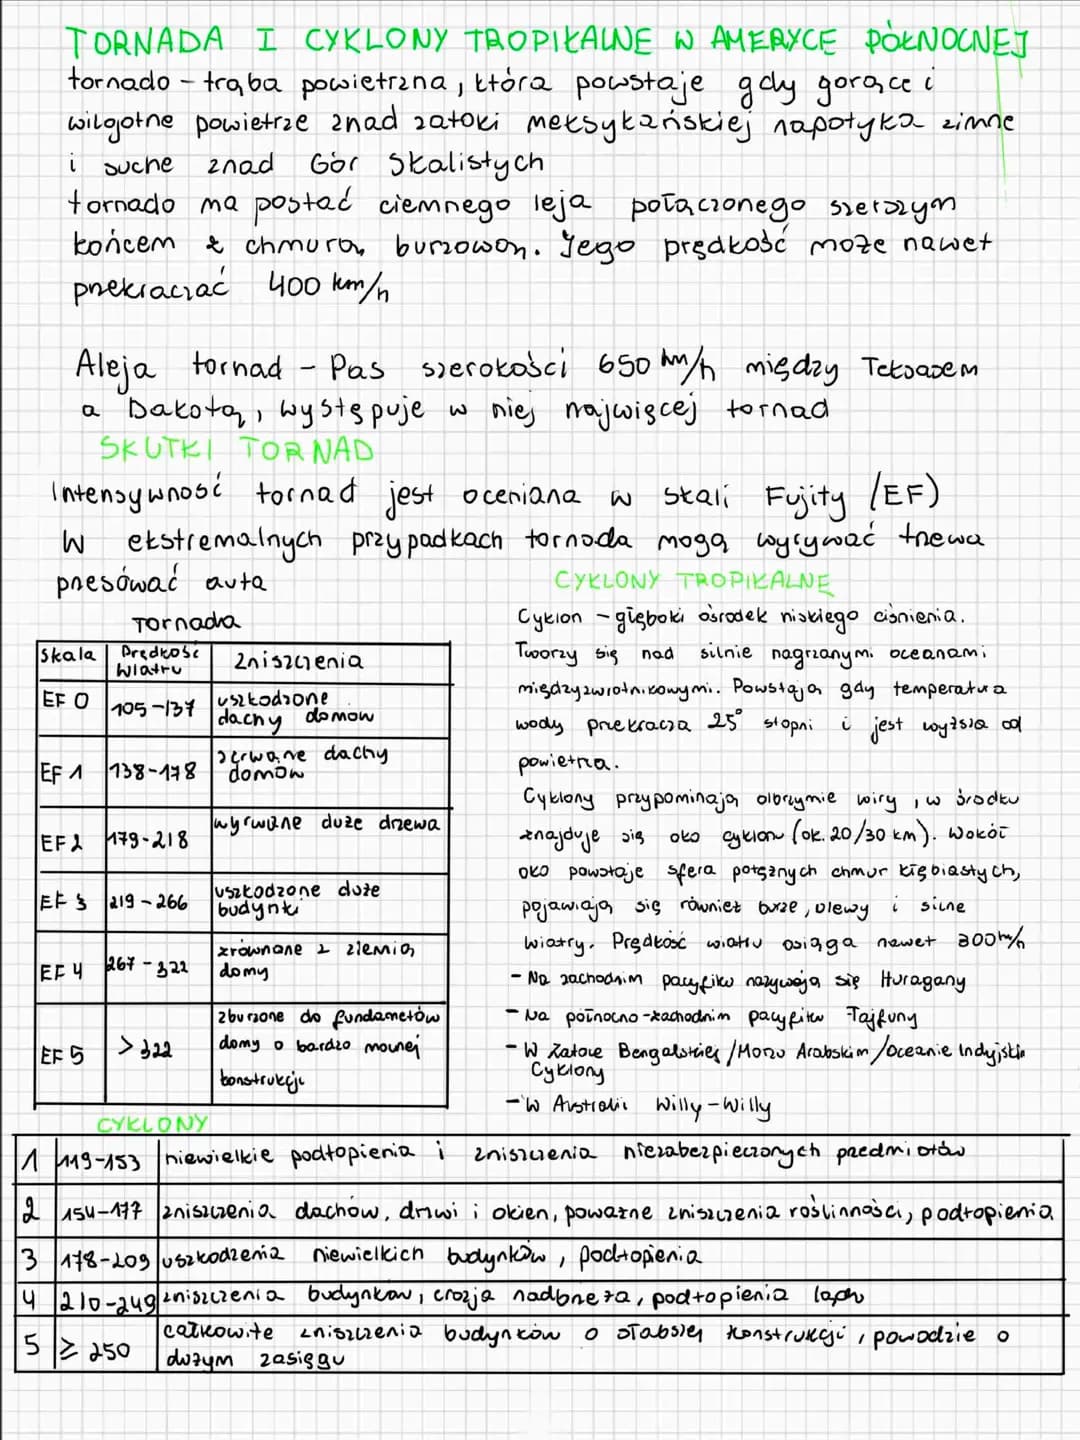 TORNADA I CYKLONY TROPIKALNE W AMERYCE PÓŁNOCNEJ
tornado – trąba powietrzna, która powstaje gdy gorące i
wilgotne powietrze znad zatoki meksykańskiej napotyka zimne
i suche znad Gór Skalistych
tornado ma postać ciemnego leja połączonego szerszym
końcem z chmurą burzową. Jego prędkość może nawet
przekraczać 400 km/h
Aleja tornad – Pas szerokości 650 km/h między Teksasem
a Dakotą, występuje w niej najwięcej tornad
SKUTKI TORNAD
Intensywność tornad jest oceniana w skali Fujity (EF)
W ekstremalnych przypadkach tornoda mogą wyrywać trzewa
presówać auta
Tornada
Skala Prędkość wiatru Zniszczenia
EF 0 105-137 uszkodzone dachy domow
EF 1 138-178 zerwane dachy domów
EF 2 179-218 wyrwane duże drzewa
EF 3 219-266 uszkodzone duże budynki
EF 4 267-322 zrównane z ziemią domy
EF 5 >322 zburzone do fundametów domy o bardzo mocnej konstrukcji
CYKLONY TROPIKALNE
Cyklon – głęboki ośrodek niskiego ciśnienia.
Tworzy się nad silnie nagrzanymi oceanami
międzyzwrotnikowymi. Powstają gdy temperatura
wody przekracza 25° stopni i jest wyższa od
powietrza.
Cyklony przypominają olbrzymie wiry, w środku
znajduje się oko cyklonu (ok. 20/30 km). Wokół
oko powstaje sfera potężnych chmur kłębiastych,
pojawiają się również burze, ulewy i silne
wiatry. Prędkość wiatru osiąga nawet 300 km/h
- Na zachodnim pacyfiku nazywają się Huragany
- Na północno-zachodnim pacyfiku Tajfuny
- W Zatoce Bengalskiej /Morzu Arabskim /Oceanie Indyjskim
Cyklony
- W Australii Willy-Willy
CYKLONY
1 119-153 niewielkie podtopienia i zniszczenia niezabezpieczonych przedmiotów
2 154-177 zniszczenia dachów, drzwi i okien, poważne zniszczenia roślinności, podtopienia
3 178-209 uszkodzenia niewielkich budynków, podtopienia
4 210-249 zniszczenia budynków, erozja nadbrzeża, podtopienia lądu
5 ≥ 250 całkowite zniszczenia budynków o słabszej konstrukcji, powodzie o
dużym zasięgu